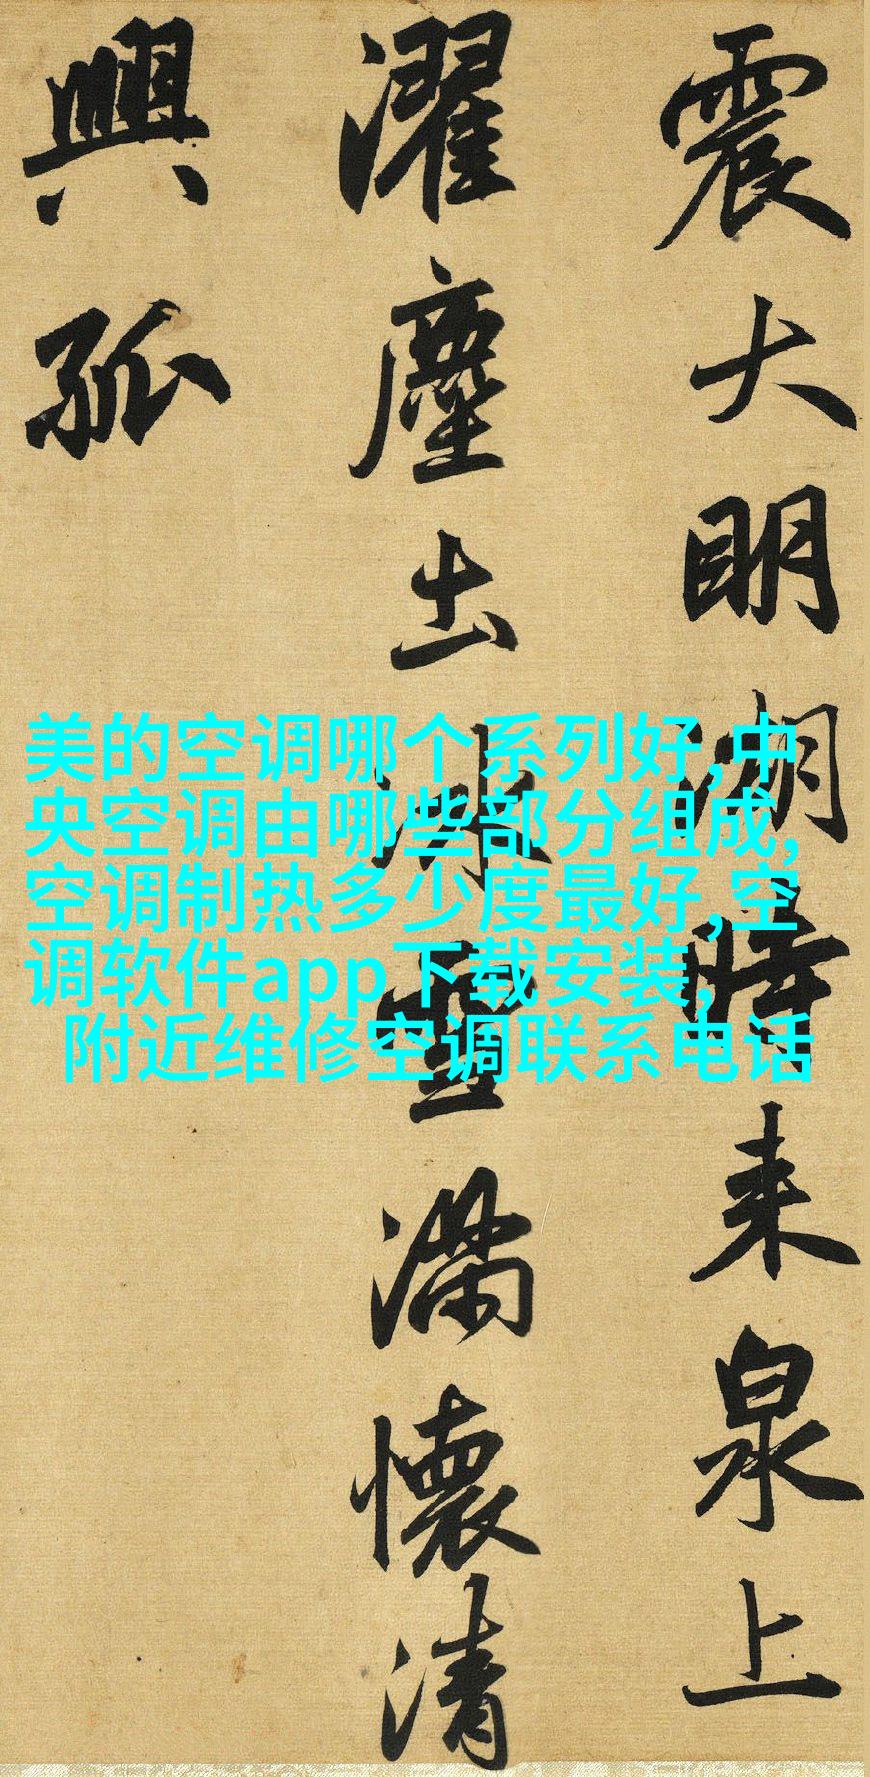 震大明湖時来泉上
濯塵土冰雪滿懷清
興孤
美的空调哪个系列好,中
央空调由哪些部分组成,
空调制热多少度最好,空
调软件app下载安装,
附近维修空调联系电话